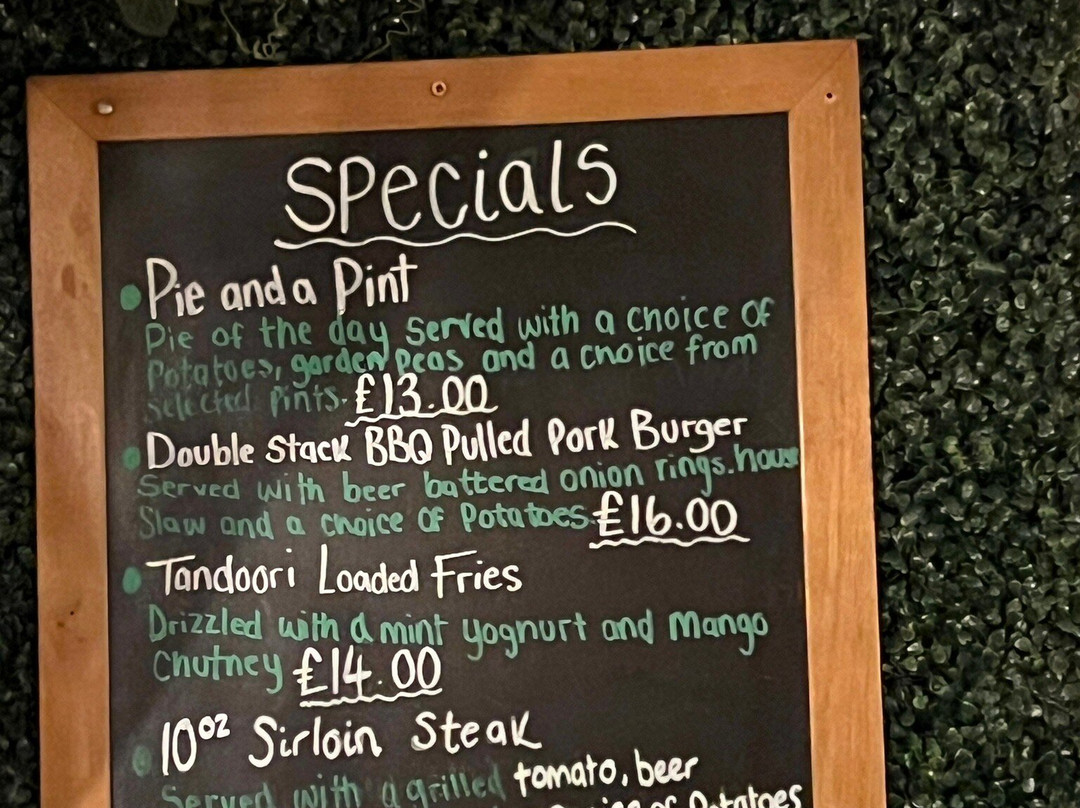 Specials
Pie and a Pint
Pie of the day served with a choice of
Potatoes, garden peas and a choice from
selected pints. £13.00
Double Stack BBQ Pulled Pork Burger
Served with beer battered onion rings. house
Slaw and a choice of Potatoes £16.00
Tandoori Loaded Fries
Drizzled with a mint yoghurt and Mango
Chutney £14.00
10oz Sirloin Steak
Served with a grilled tomato, beer
of Potatoes